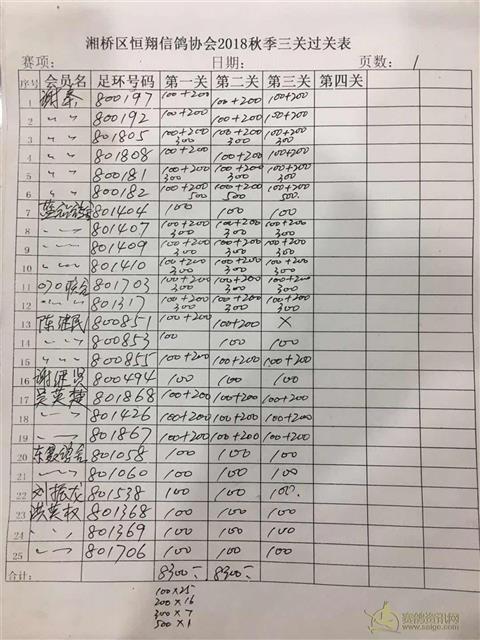 湘桥区恒翔信鸽协会2018秋季三关过关表
赛项: 日期: 页数: 1
序号 会员名 足环号码 第一关 第二关 第三关 第四关
1 谢秦 800197 100+200 100+200 100+200
2 〃 〃 800192 100+200 100+200 100+200
3 〃 〃 801805 100+200 300 100+200 300 100+200 300
4 〃 〃 801808 100+200 100+200 100+200
5 〃 〃 800181 100+200 300 100+200 300 100+200 300
6 〃 〃 800182 100+200 500 100+200 500 100+200 500
7 801404 100 100 100
8 〃 〃 801407 100+200 300 100+200 300 100+200 300
9 〃 〃 801409 100+200 300 100+200 300 100+200 300
10 〃 〃 801410 100+200 300 100+200 300 100+200 300
11 070联合 801703 100+200 300 100+200 300 100+200 300
12 〃 〃 801317 100+200 300 100+200 300 100+200 300
13 陈建民 800851 100+200 100+200 ×
14 〃 〃 800853 100 100 100
15 〃 〃 800855 100+200 100+200 100+200
16 谢继贤 800494 100 100 100
17 吴英楚 801868 100+200 100+200 100+200
18 〃 〃 801426 100+200 100+200 100+200
19 〃 〃 801867 100+200 100+200 100+200
20 801058 100 100 100
21 〃 〃 801060 100 100 100
22 刘振龙 801538 100 100 100
23 洪英权 801368 100 100 100
24 〃 〃 801369 100 100 100
25 〃 〃 801706 100 100 100
合计: 8300 8300
100×25
200×16
300×7
500×1
赛鸽资讯网
www.saige.com